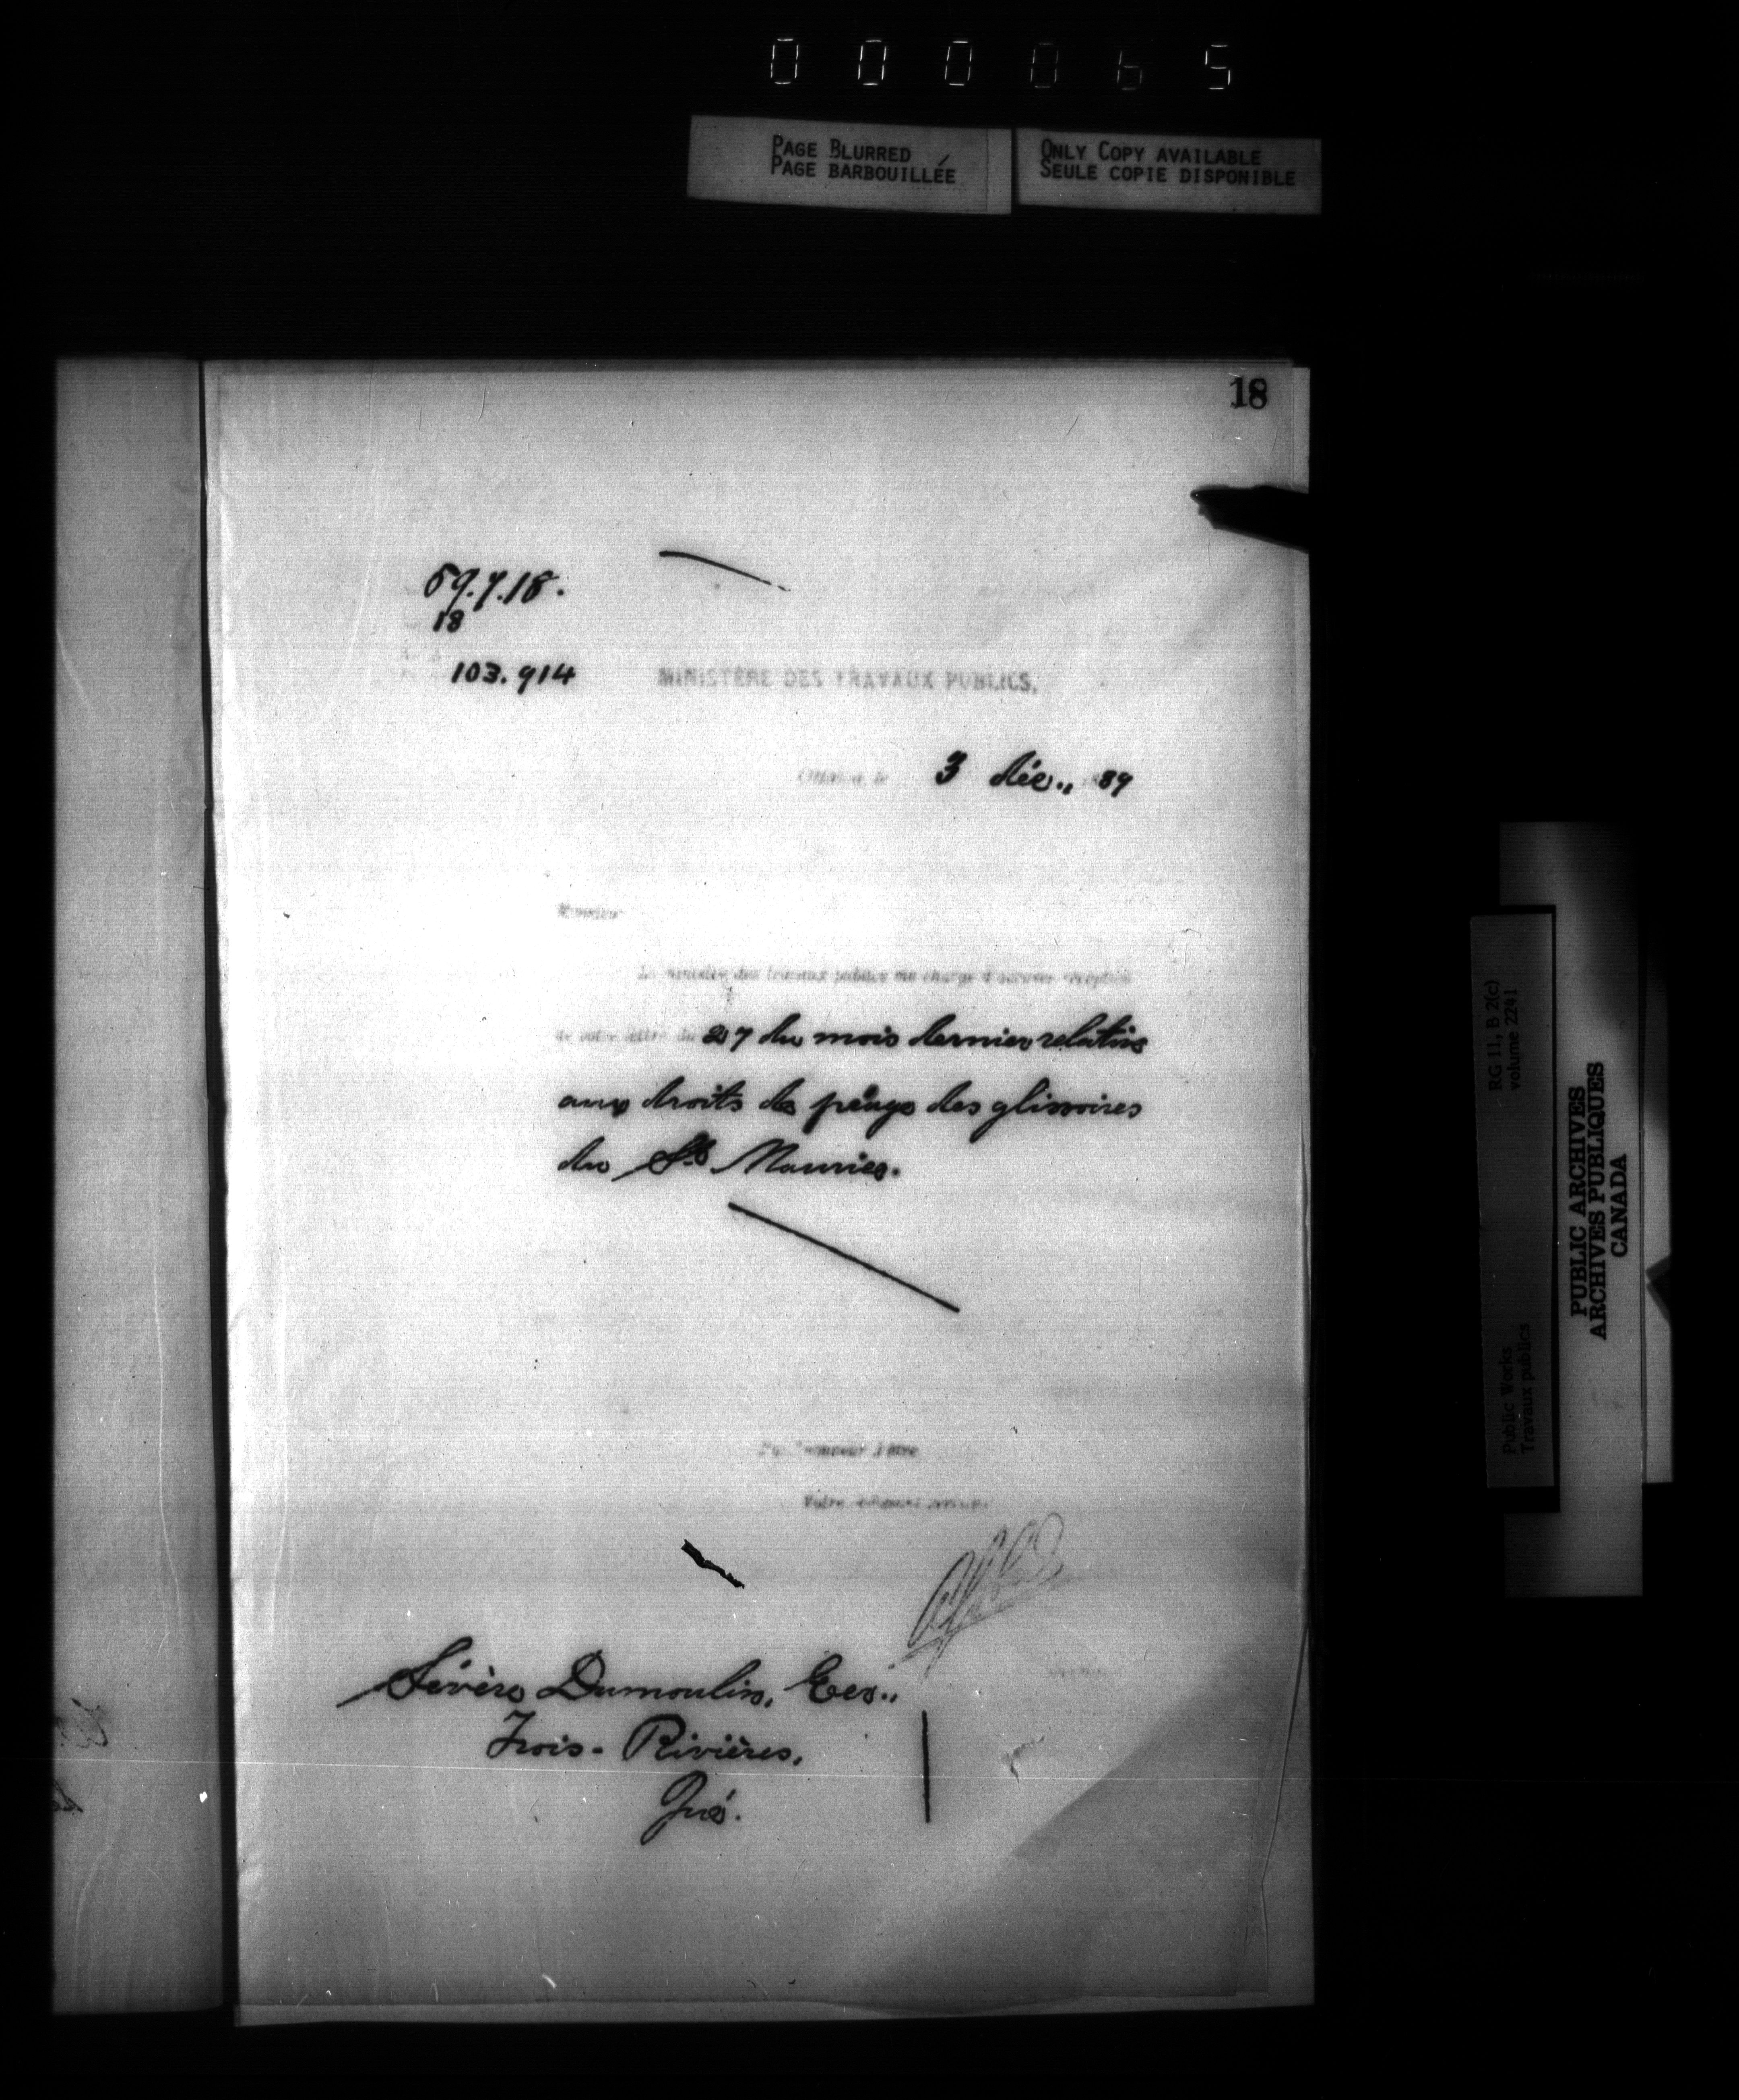 000065
PAGE BLURRED
PAGE BARBOUILLÉE
ONLY COPY AVAILABLE
SEULE COPIE DISPONIBLE
18
59.7.18.
18
103.914
MINISTÈRE DES TRAVAUX PUBLICS.
Ottawa, le 3 déc., 89
Monsieur
Le ministre des travaux publics me charge d'accuser réception
de votre lettre du 27 du mois dernier relative
aux droits de péage des glissoires
du St Maurice.
J'ai l'honneur d'être
Votre obéissant serviteur
Sévère Dumoulin, Ecr.,
Trois-Rivières,
Qué.
RG 11, B 2(c)
volume 2241
Public Works
Travaux publics
PUBLIC ARCHIVES
ARCHIVES PUBLIQUES
CANADA